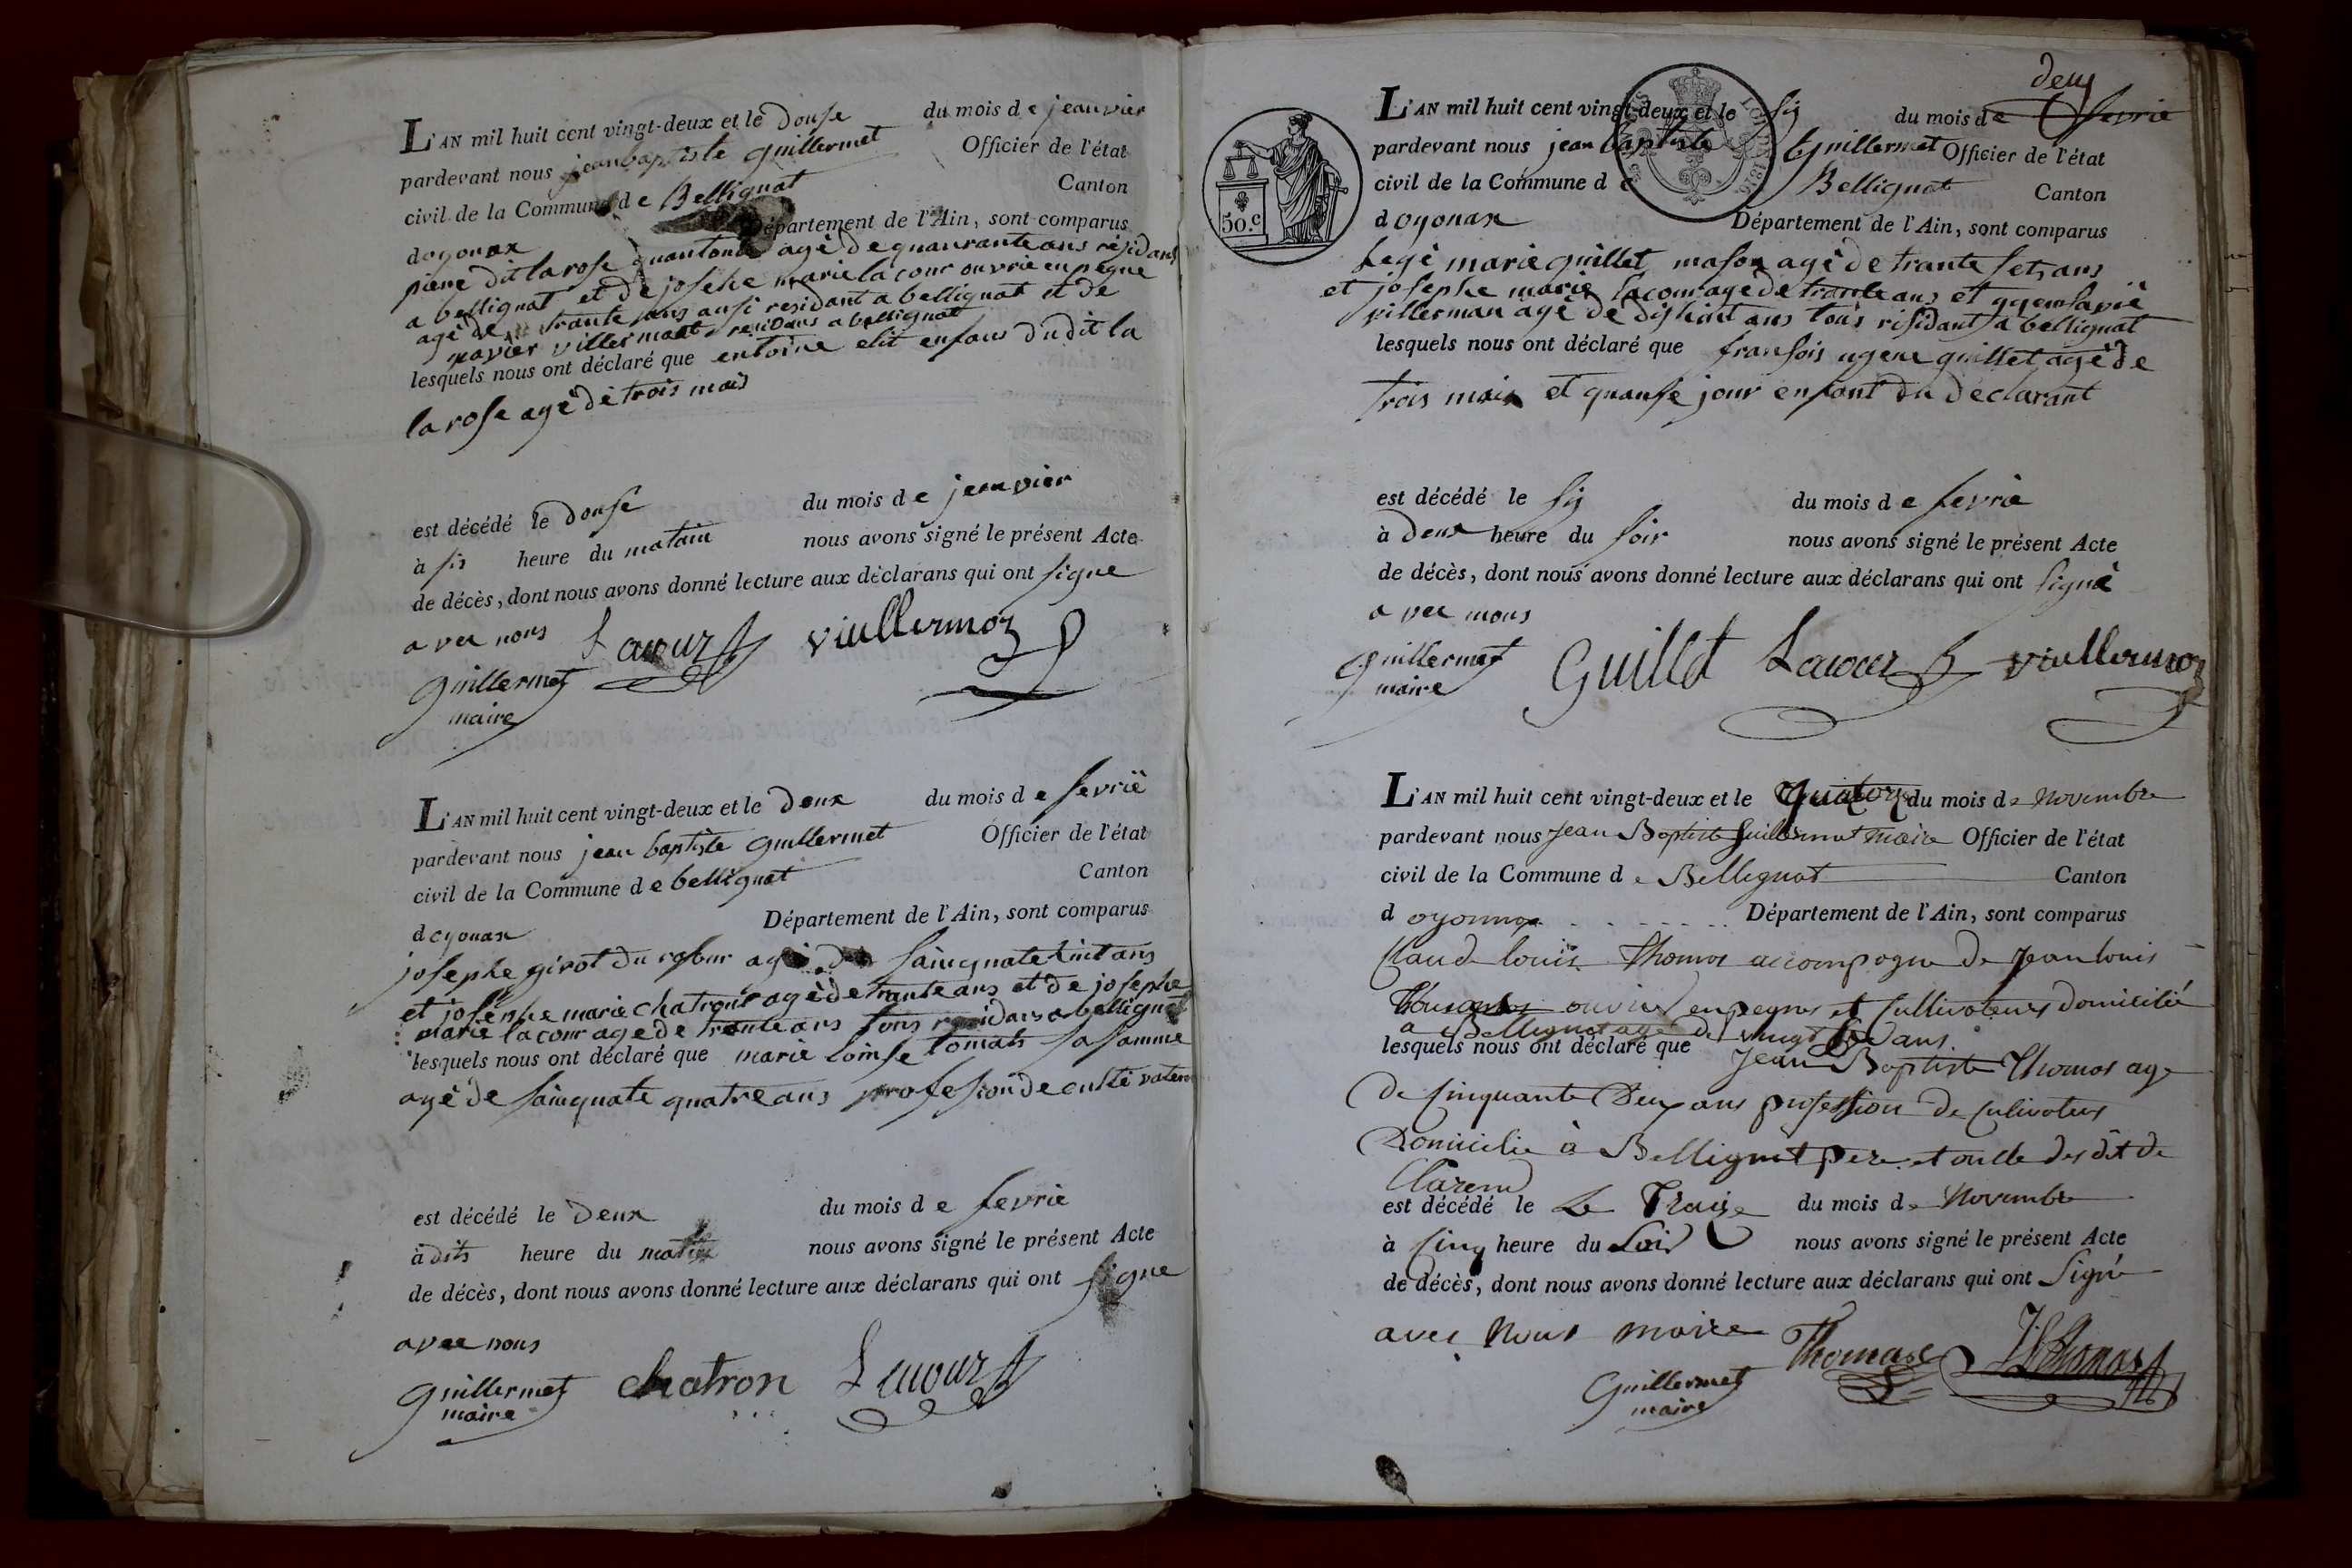 L'AN mil huit cent vingt-deux et le douse du mois de jeanvier
pardevant nous jeanbaptiste guillermet Officier de l'état
civil de la Commune de Bellignat Canton
doyonax Département de l'Ain, sont comparus
piere dit larose agé de quanrante ans résidant
a bellignat et de josephe marie lacour ouvrie en pegne
agé de trante ans ausi residant a bellignat et de
villermoz residans a bellignat
lesquels nous ont déclaré que entoine enfans dudit la
larose agé de trois mois
est décédé le douse du mois de jeanvier
à sis heure du matain nous avons signé le présent Acte
de décès, dont nous avons donné lecture aux déclarans qui ont signe
avec nous Lacour viullermoz
guillermet
maire
L'AN mil huit cent vingt-deux et le deux du mois de fevrié
pardevant nous jean baptiste guillermet Officier de l'état
civil de la Commune de bellignat Canton
doyonax Département de l'Ain, sont comparus
josephe girot du agé de sainquate huit ans
et josephe marie chatron agé de trante ans et de josephe
marie lacour age de trente ans tous residans a bellignat
lesquels nous ont déclaré que marie loinse tomas sa famme
agé de sainquate quatre ans profesion de cultivateur
est décédé le deux du mois de fevrie
à dits heure du matin nous avons signé le présent Acte
de décès, dont nous avons donné lecture aux déclarans qui ont signe
avec nous
guillermet chatron Lacour
maire
deux
L'AN mil huit cent vingt-deux et le sis du mois de fevrie
pardevant nous jean baptiste Guillermet Officier de l'état
civil de la Commune de Bellignat Canton
doyonax Département de l'Ain, sont comparus
50.c
marie guillet mason agé de trante set ans
et josephe marie lacour agé de trante ans et
villerman agé de dishuit ans tous risidant a bellignat
lesquels nous ont déclaré que fransois ugene guillet agé de
trois mois et quanse jour enfant du déclarant
est décédé le sis du mois de fevrie
à deux heure du soir nous avons signé le présent Acte
de décès, dont nous avons donné lecture aux déclarans qui ont signé
avec nous
guillermet Guillet Lacour viullermoz
maire
L'AN mil huit cent vingt-deux et le quatorze du mois de Novembre
pardevant nous Jean Baptiste Guillermet maire Officier de l'état
civil de la Commune de Bellignat Canton
d oyonnax Département de l'Ain, sont comparus
Claude louis Thomas accompagne de Jean louis
Thomas ouvrier en pegnes et Cultivateurs domicilié
a Bellignat age de vingt ans
lesquels nous ont déclaré que Jean Baptiste Thomas age
de Cinquante Deux ans profession de Culivateur
Domicilie à Bellignat pere et oncle des dit de
Clarend
est décédé le Le Traize du mois de Novembre
à Cinq heure du Soir nous avons signé le présent Acte
de décès, dont nous avons donné lecture aux déclarans qui ont Signé
avec Nous maire Thomas JL Thomas
Guillermet
maire